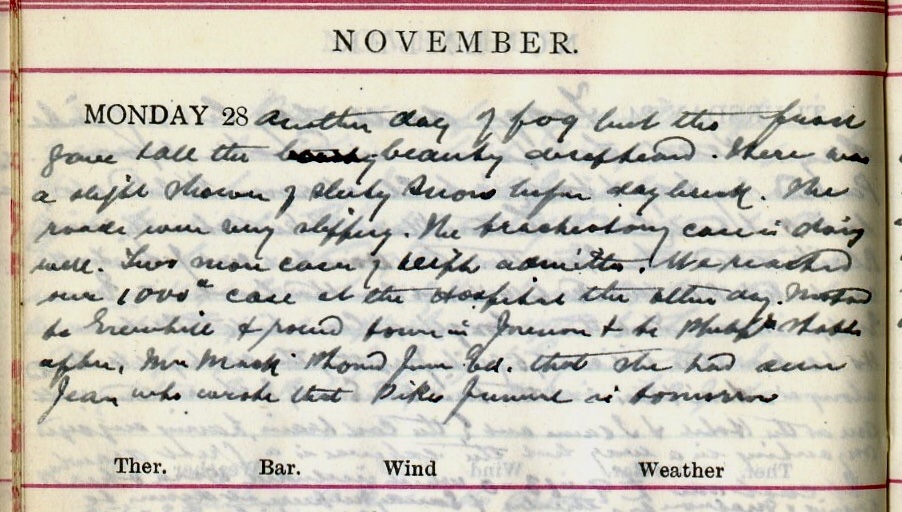 NOVEMBER.
MONDAY 28 Another day of fog but the frost
gone & all the beauty disappeared. There was
a slight shower of sleety snow before daybreak. The
roads were very slippery. The tracheotomy case is doing
well. Two more cases of diph admitted. We reached
our 1000th case at the Hospital the other day. Motored
to & round town in forenoon & to
after. Mrs Mack phoned from Ed. that she had seen
Jean who wrote that funeral is tomorrow
Ther. Bar. Wind Weather